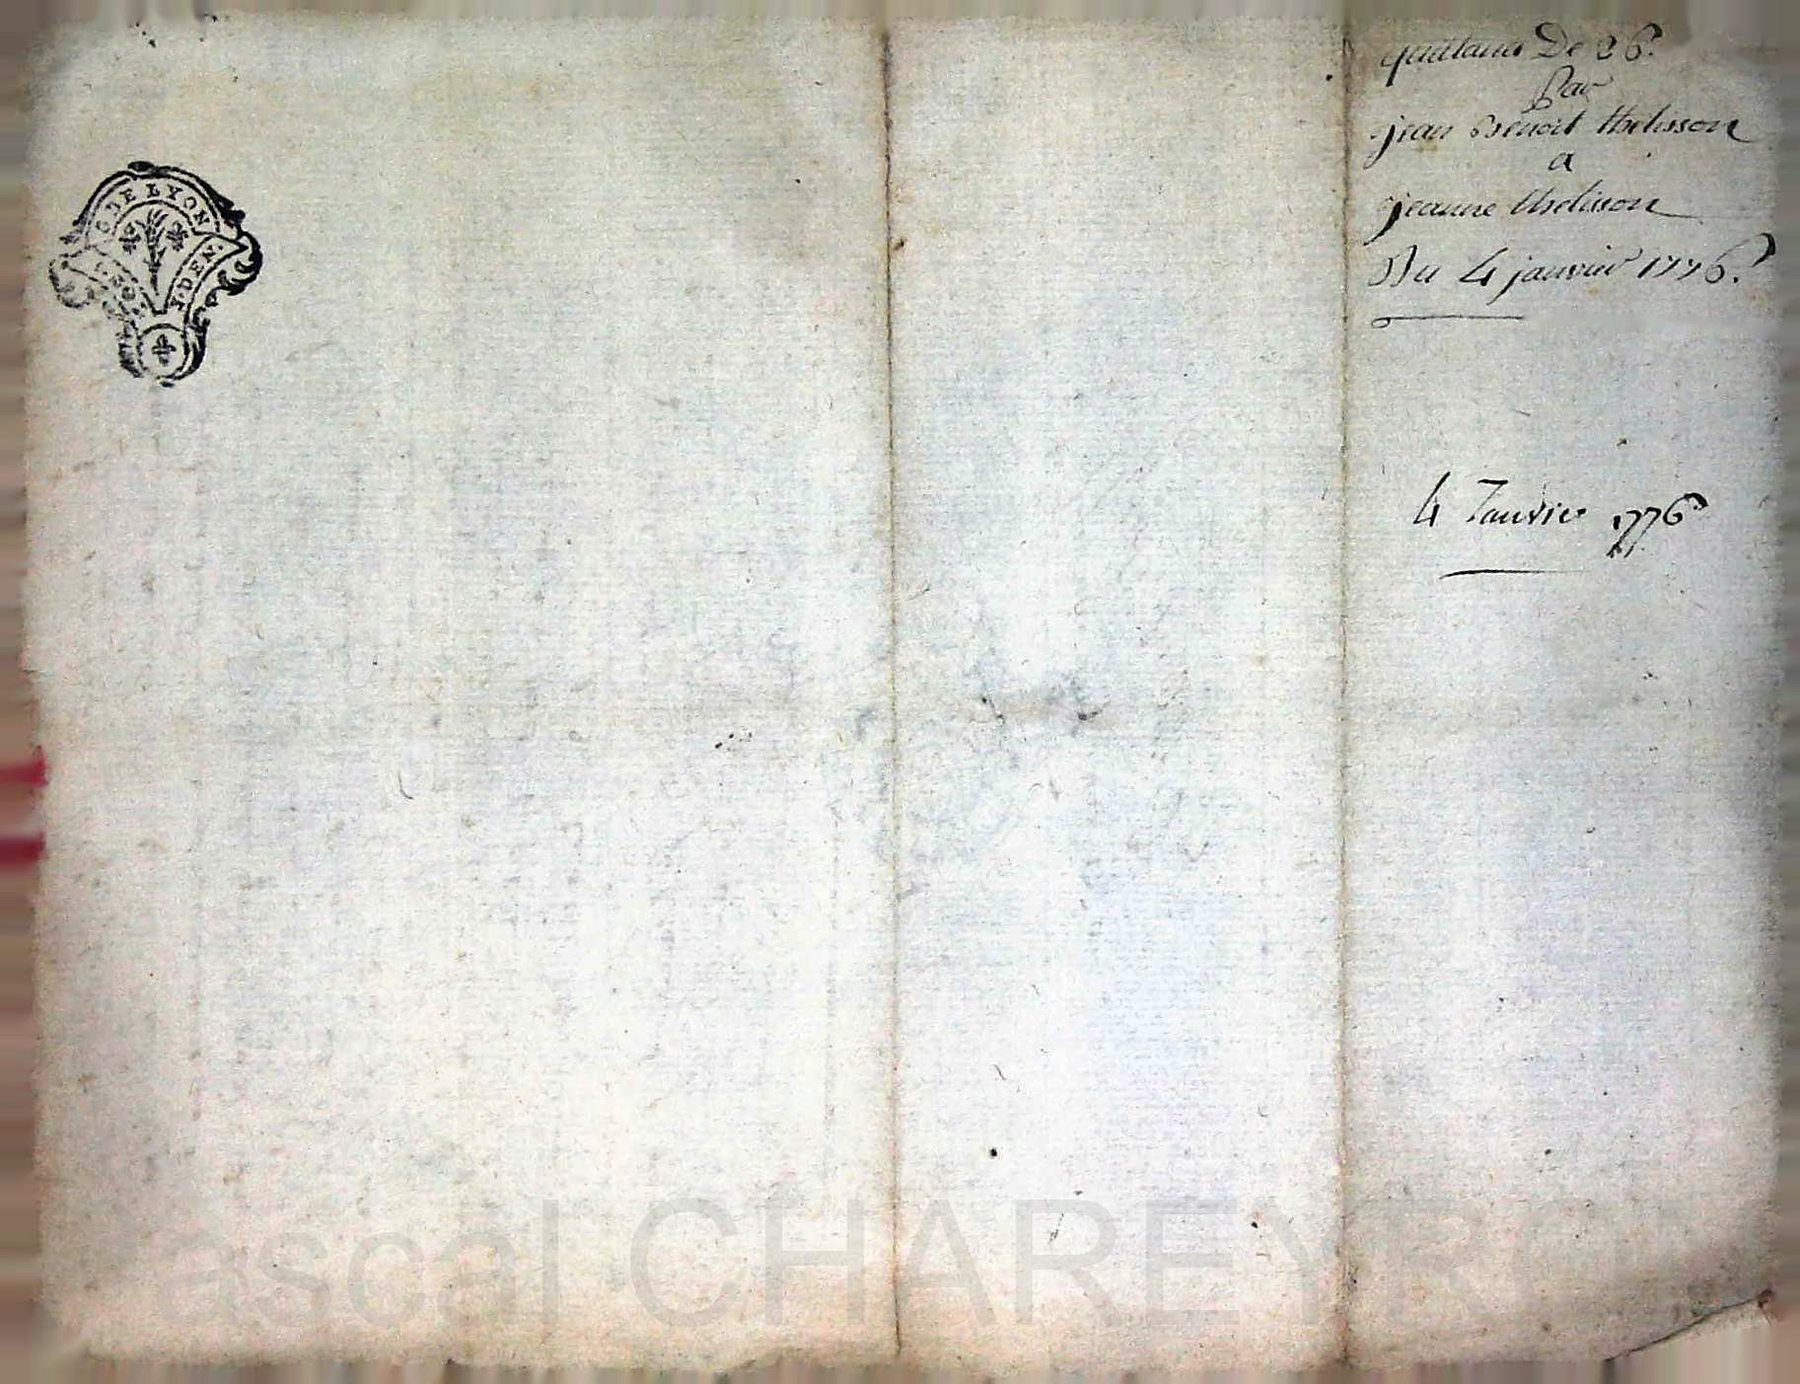 G. DE LYON
1.SOL. 4.DEN.
quittance De 26ᵗᵗ
Par
jean Benoit thelisson
a
jeanne thelisson
Du 4 janvier 1776.
4 Janvier 1776
ascal CHAREYRO